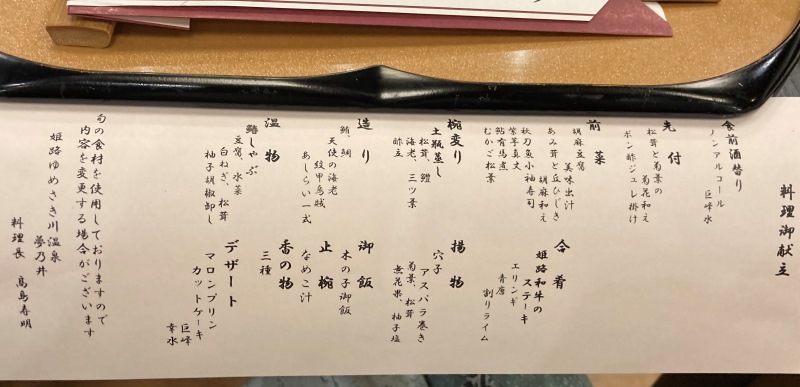 料理御献立
食前酒替り
ノンアルコール 巨峰水
先付
松茸と菊菜の
菊花和え
ポン酢ジュレ掛け
前菜
胡麻豆腐
美味出汁
あみ茸と丘ひじき
胡麻和え
秋刀魚小袖寿司
紫芋真丈
鮎有馬煮
むかご松葉
椀変り
土瓶蒸し
松茸、鱧
海老、三ツ葉
酢立
造り
鮪、鯛
天使の海老
紋甲烏賊
あしらい一式
温物
鰆しゃぶ
豆腐、水菜
白ねぎ、松茸
柚子胡椒卸し
合肴
姫路和牛の
ステーキ
エリンギ
青唐
割りライム
揚物
穴子
アスパラ巻き
菊菜、松茸
無花果、柚子塩
御飯
木の子御飯
止椀
なめこ汁
香の物
三種
デザート
マロンプリン
カットケーキ
巨峰
幸水
旬の食材を使用しておりますので
内容を変更する場合がございます
姫路ゆめさき川温泉
夢乃井
料理長 高島春明